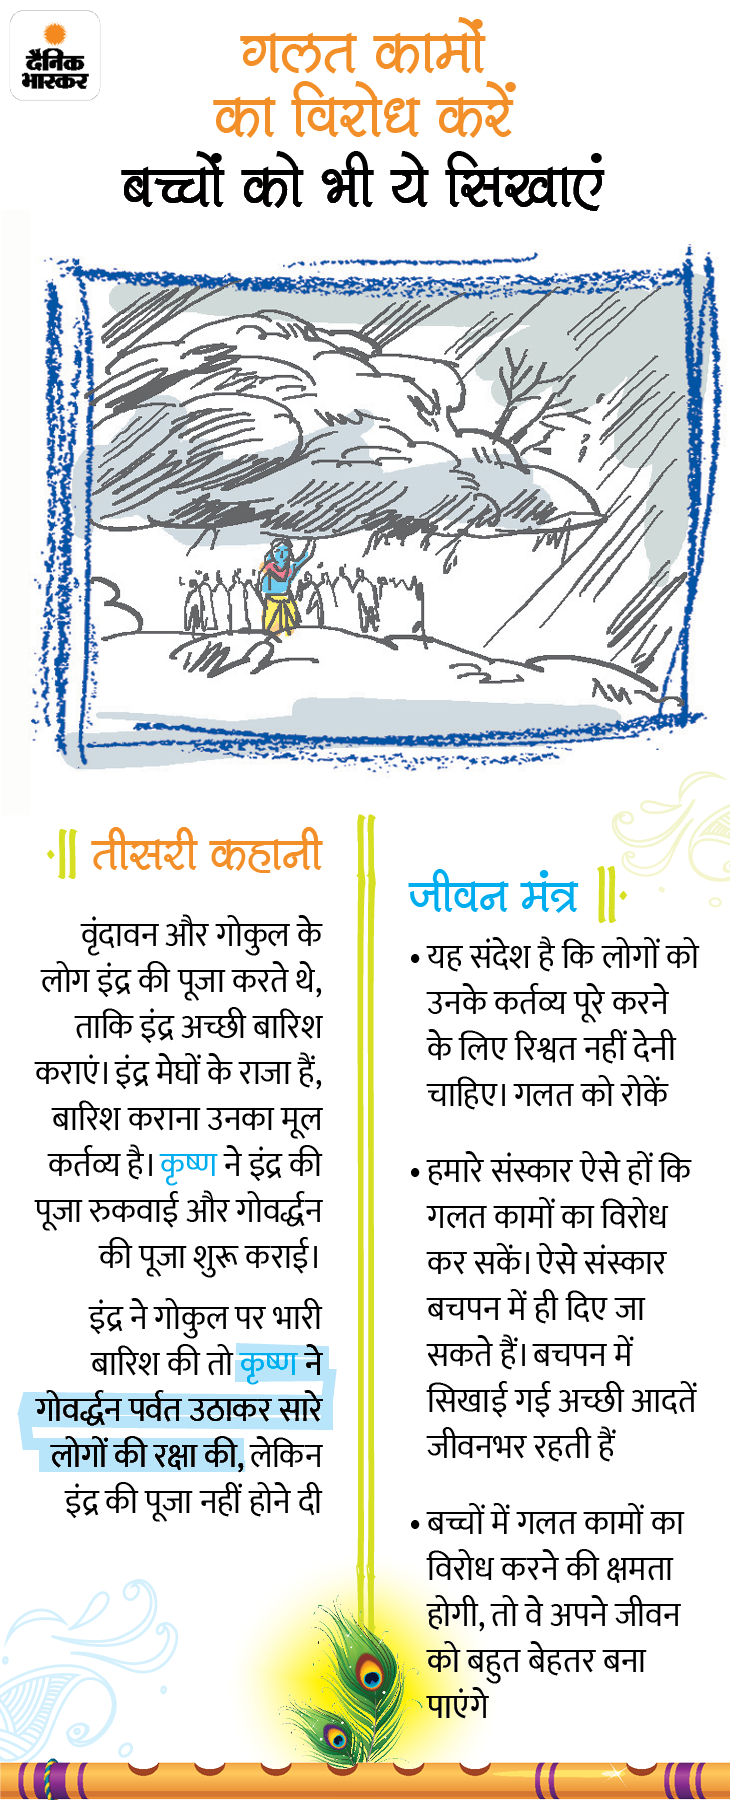 दैनिक
भास्कर
गलत कामों
का विरोध करें
बच्चों को भी ये सिखाएं
तीसरी कहानी
वृंदावन और गोकुल के
लोग इंद्र की पूजा करते थे,
ताकि इंद्र अच्छी बारिश
कराएं। इंद्र मेघों के राजा हैं,
बारिश कराना उनका मूल
कर्तव्य है। कृष्ण ने इंद्र की
पूजा रुकवाई और गोवर्द्धन
की पूजा शुरू कराई।
इंद्र ने गोकुल पर भारी
बारिश की तो कृष्ण ने
गोवर्द्धन पर्वत उठाकर सारे
लोगों की रक्षा की, लेकिन
इंद्र की पूजा नहीं होने दी
जीवन मंत्र
• यह संदेश है कि लोगों को
उनके कर्तव्य पूरे करने
के लिए रिश्वत नहीं देनी
चाहिए। गलत को रोकें
• हमारे संस्कार ऐसे हों कि
गलत कामों का विरोध
कर सकें। ऐसे संस्कार
बचपन में ही दिए जा
सकते हैं। बचपन में
सिखाई गई अच्छी आदतें
जीवनभर रहती हैं
• बच्चों में गलत कामों का
विरोध करने की क्षमता
होगी, तो वे अपने जीवन
को बहुत बेहतर बना
पाएंगे